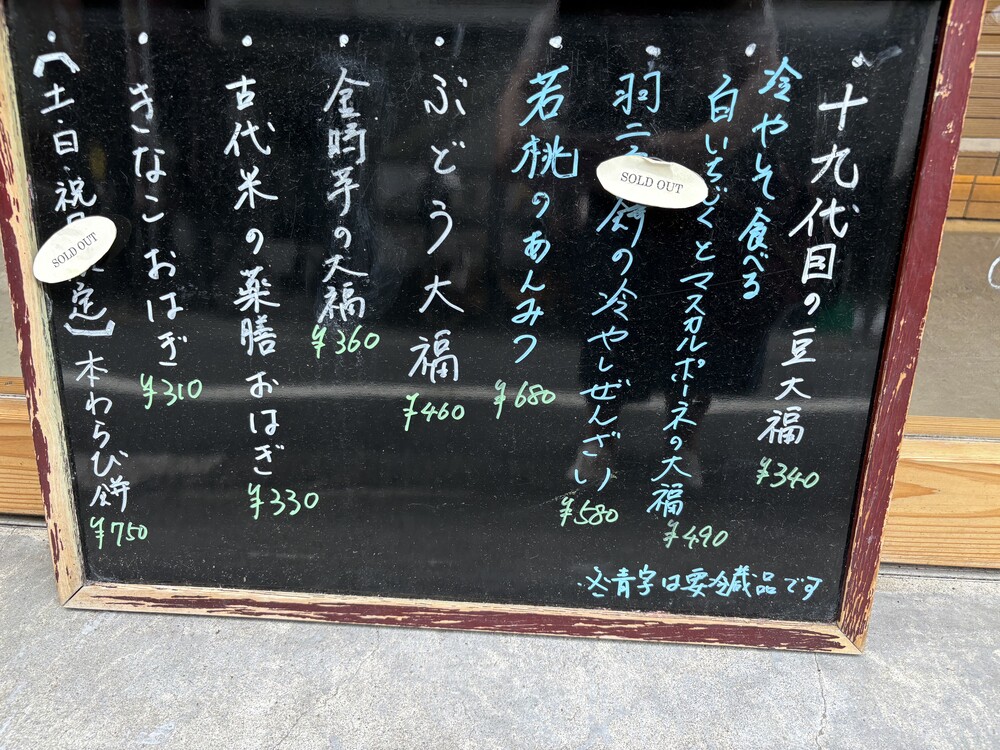 ・十九代目の豆大福
¥340
・冷やして食べる
白いちじくとマスカルポーネの大福
¥490
・羽二 餅の冷やしぜんざい
¥580
SOLD OUT
・若桃のあんみつ
¥680
・ぶどう大福
¥460
・金時芋の大福
¥360
・古代米の薬膳おはぎ
¥330
・きなこおはぎ
¥310
・【土・日・祝日 定】本わらび餅
¥750
SOLD OUT
※青字は要冷蔵品です